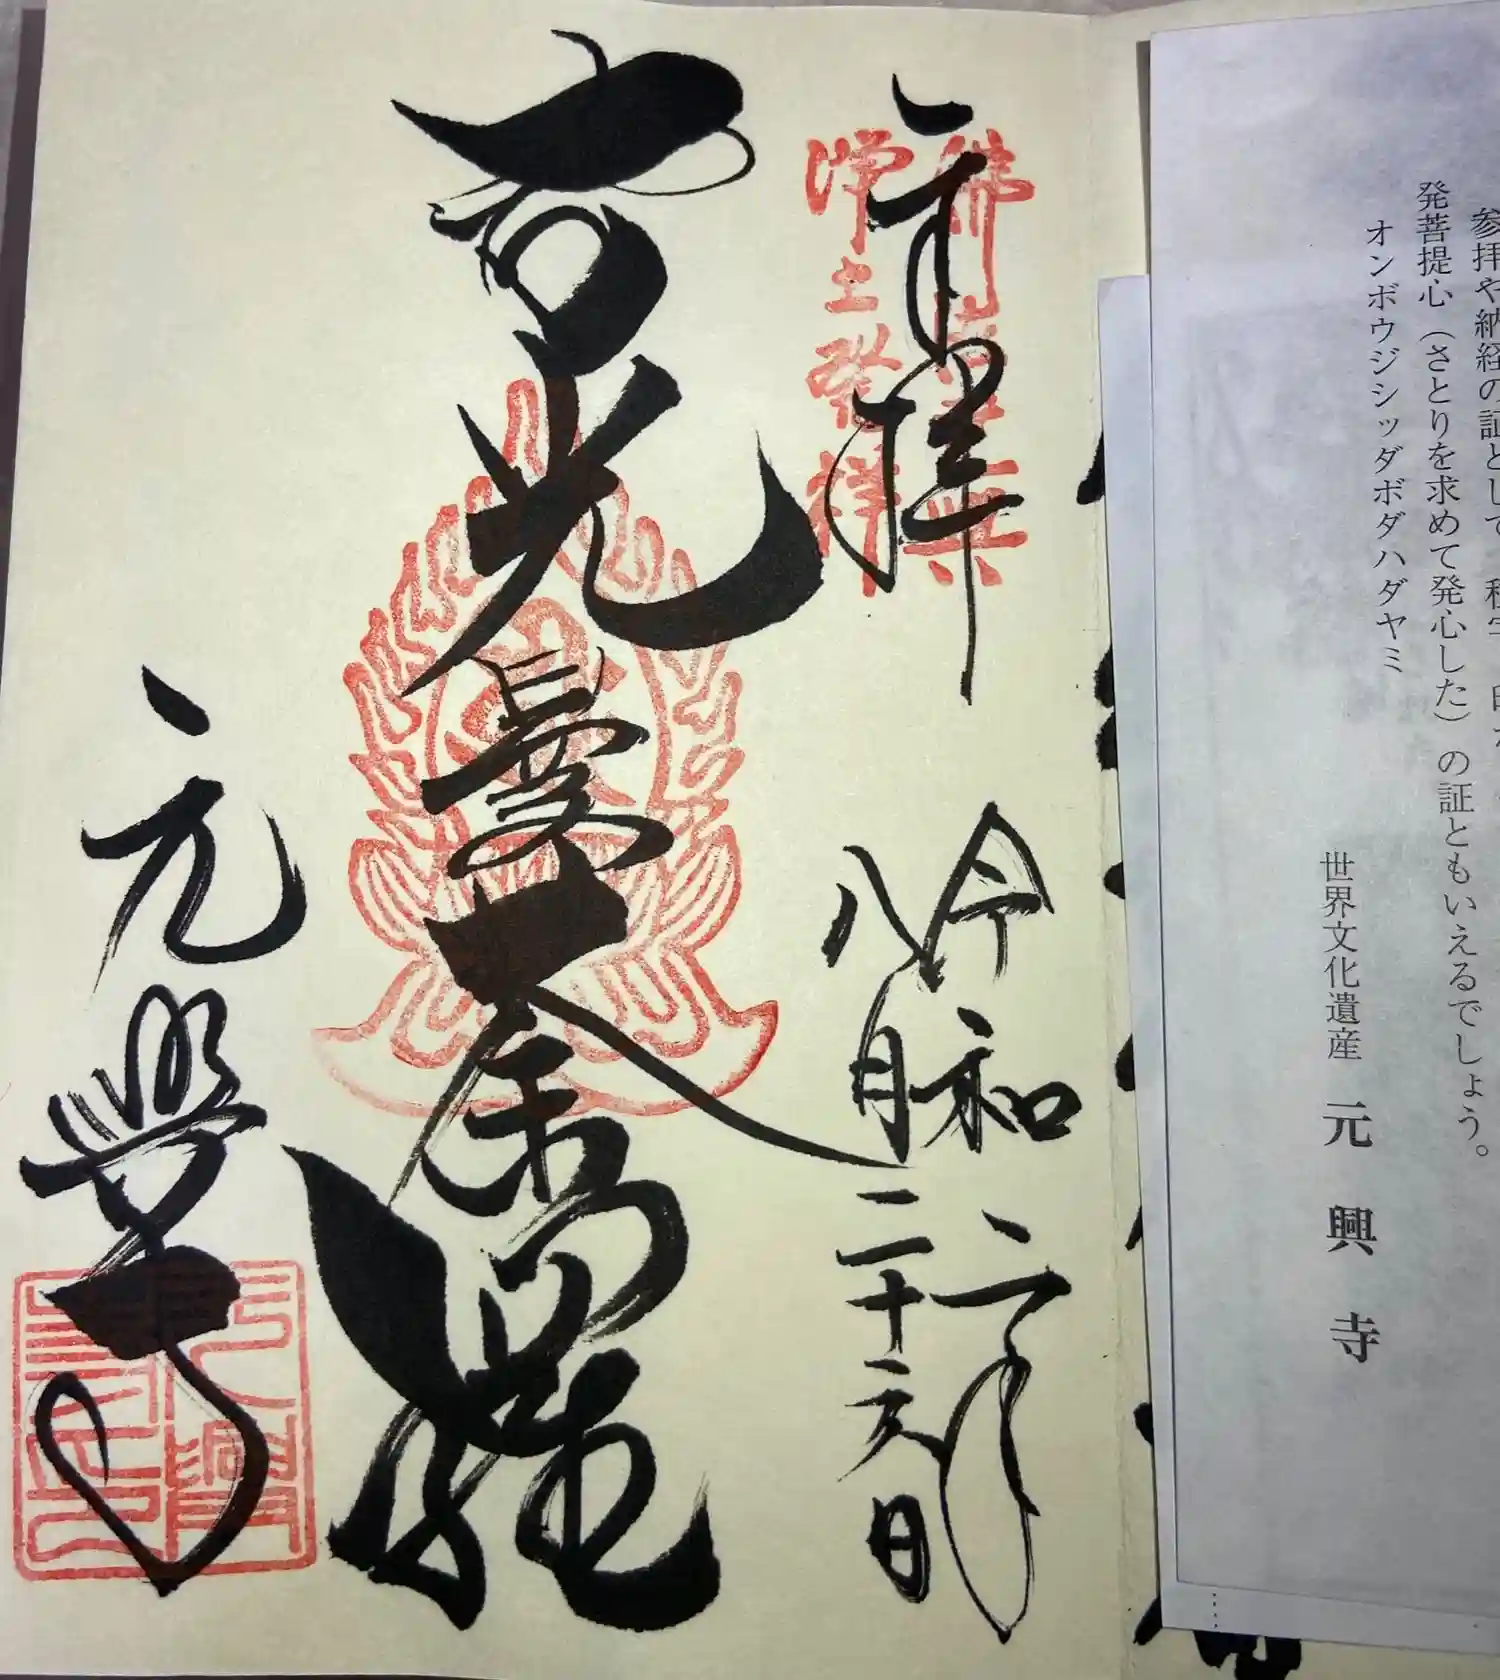 参拝や納経の証として
発菩提心（さとりを求めて発心した）の証ともいえるでしょう。
オンボウジシッダボダハダヤミ
世界文化遺産 元興寺
奉拝
浄土發祥
令和二年
八月二十六日
智光曼荼羅
元興寺